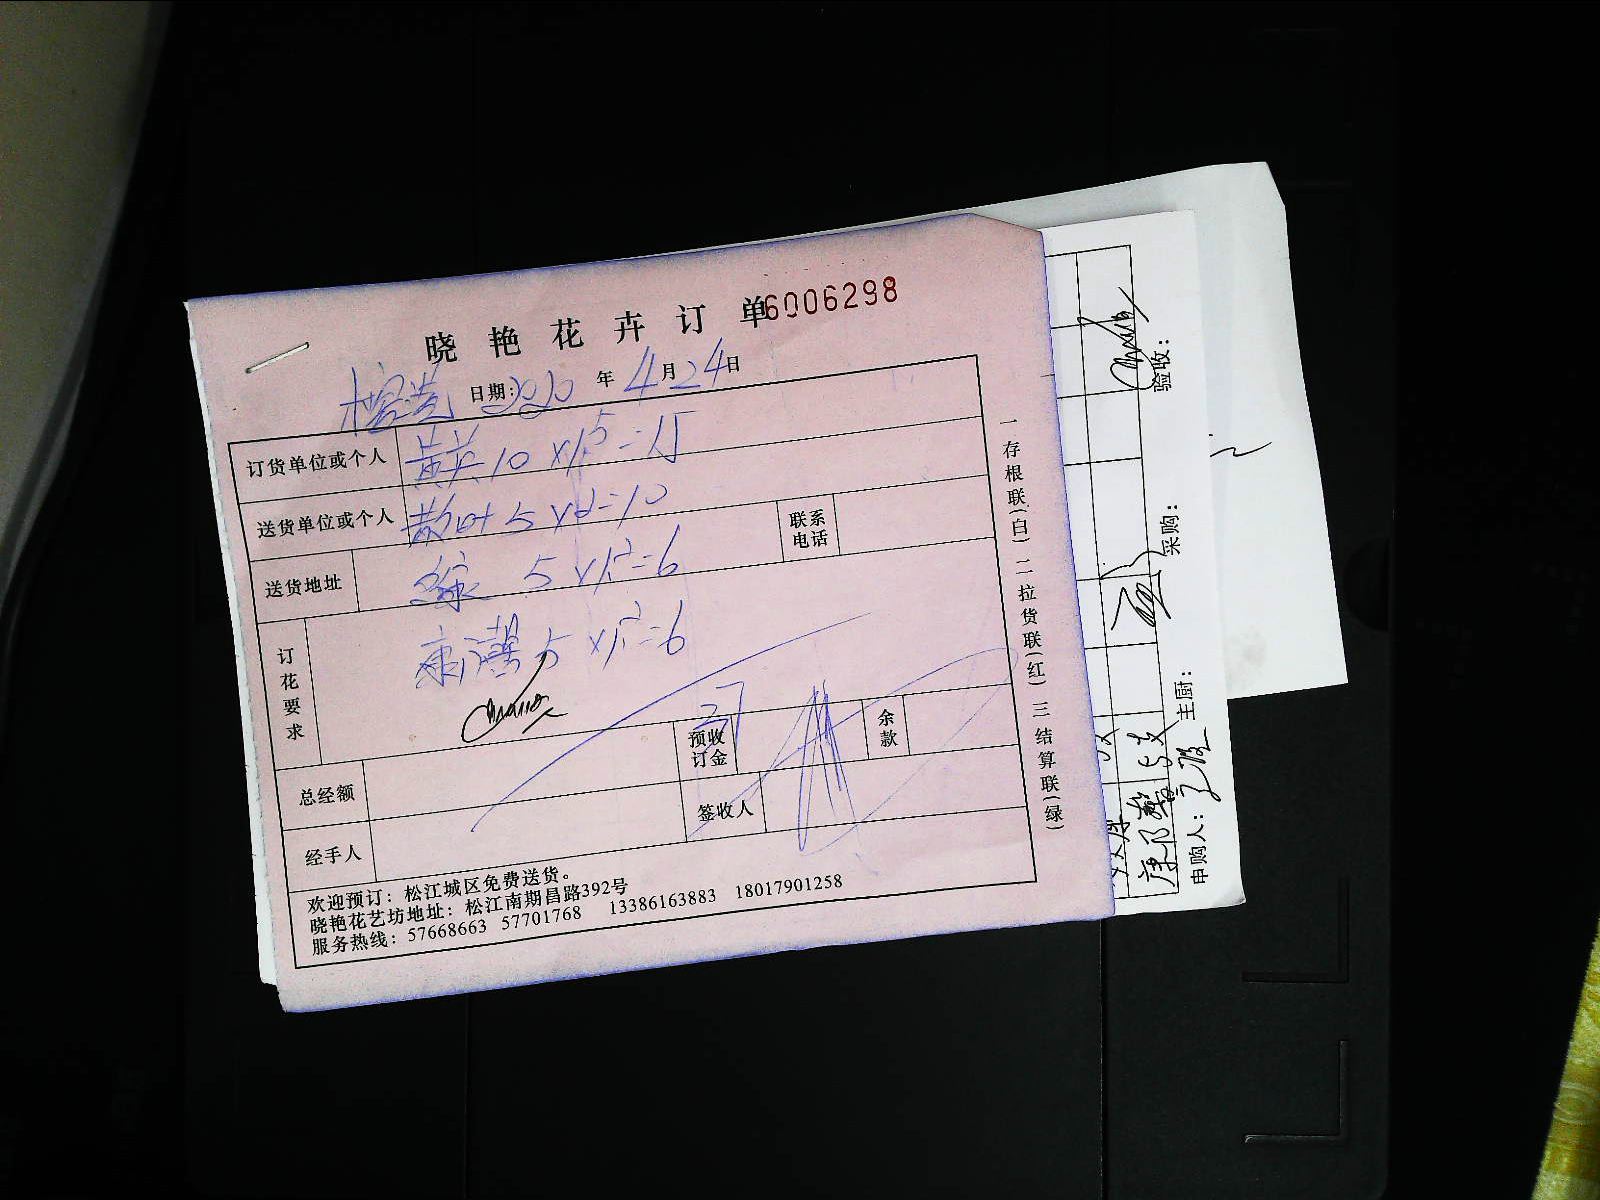 晓艳花卉订单 6006298
日期: 2020 年 4 月 24 日
订货单位或个人 黄英 10 x1.5=15
送货单位或个人 散叶 5 x2=10
联系电话
送货地址 绿 5 x1.2=6
订花要求 康乃馨 5 x1.2=6
预收订金
余款
总经额
签收人
经手人
欢迎预订：松江城区免费送货。
晓艳花艺坊地址：松江南期昌路392号
服务热线：57668663 57701768 13386163883 18017901258
一存根联(白) 二拉货联(红) 三结算联(绿)
验收：
采购：
主厨：
申购人：